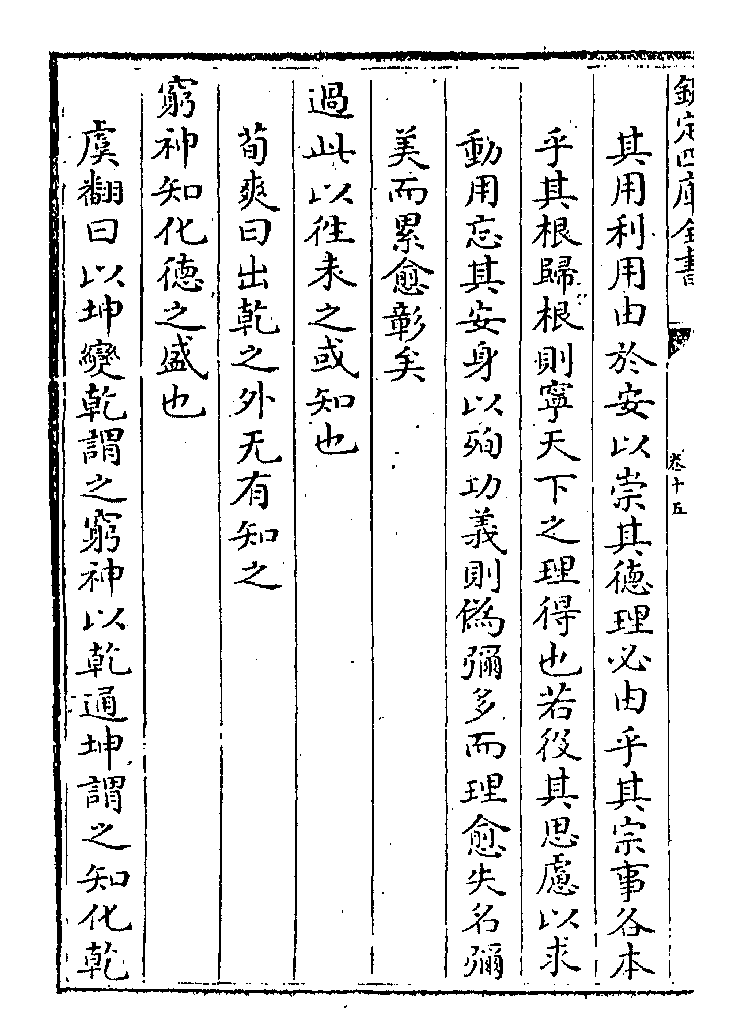 欽定四庫全書
卷十五
其用利用由於安以崇其德理必由乎其宗事各本
乎其根歸根則寧天下之理得也若役其思慮以求
動用忘其安身以殉功義則僞彌多而理愈失名彌
美而累愈彰矣
過此以往未之或知也
荀爽曰出乾之外无有知之
窮神知化德之盛也
虞翻曰以坤變乾謂之窮神以乾通坤謂之知化乾